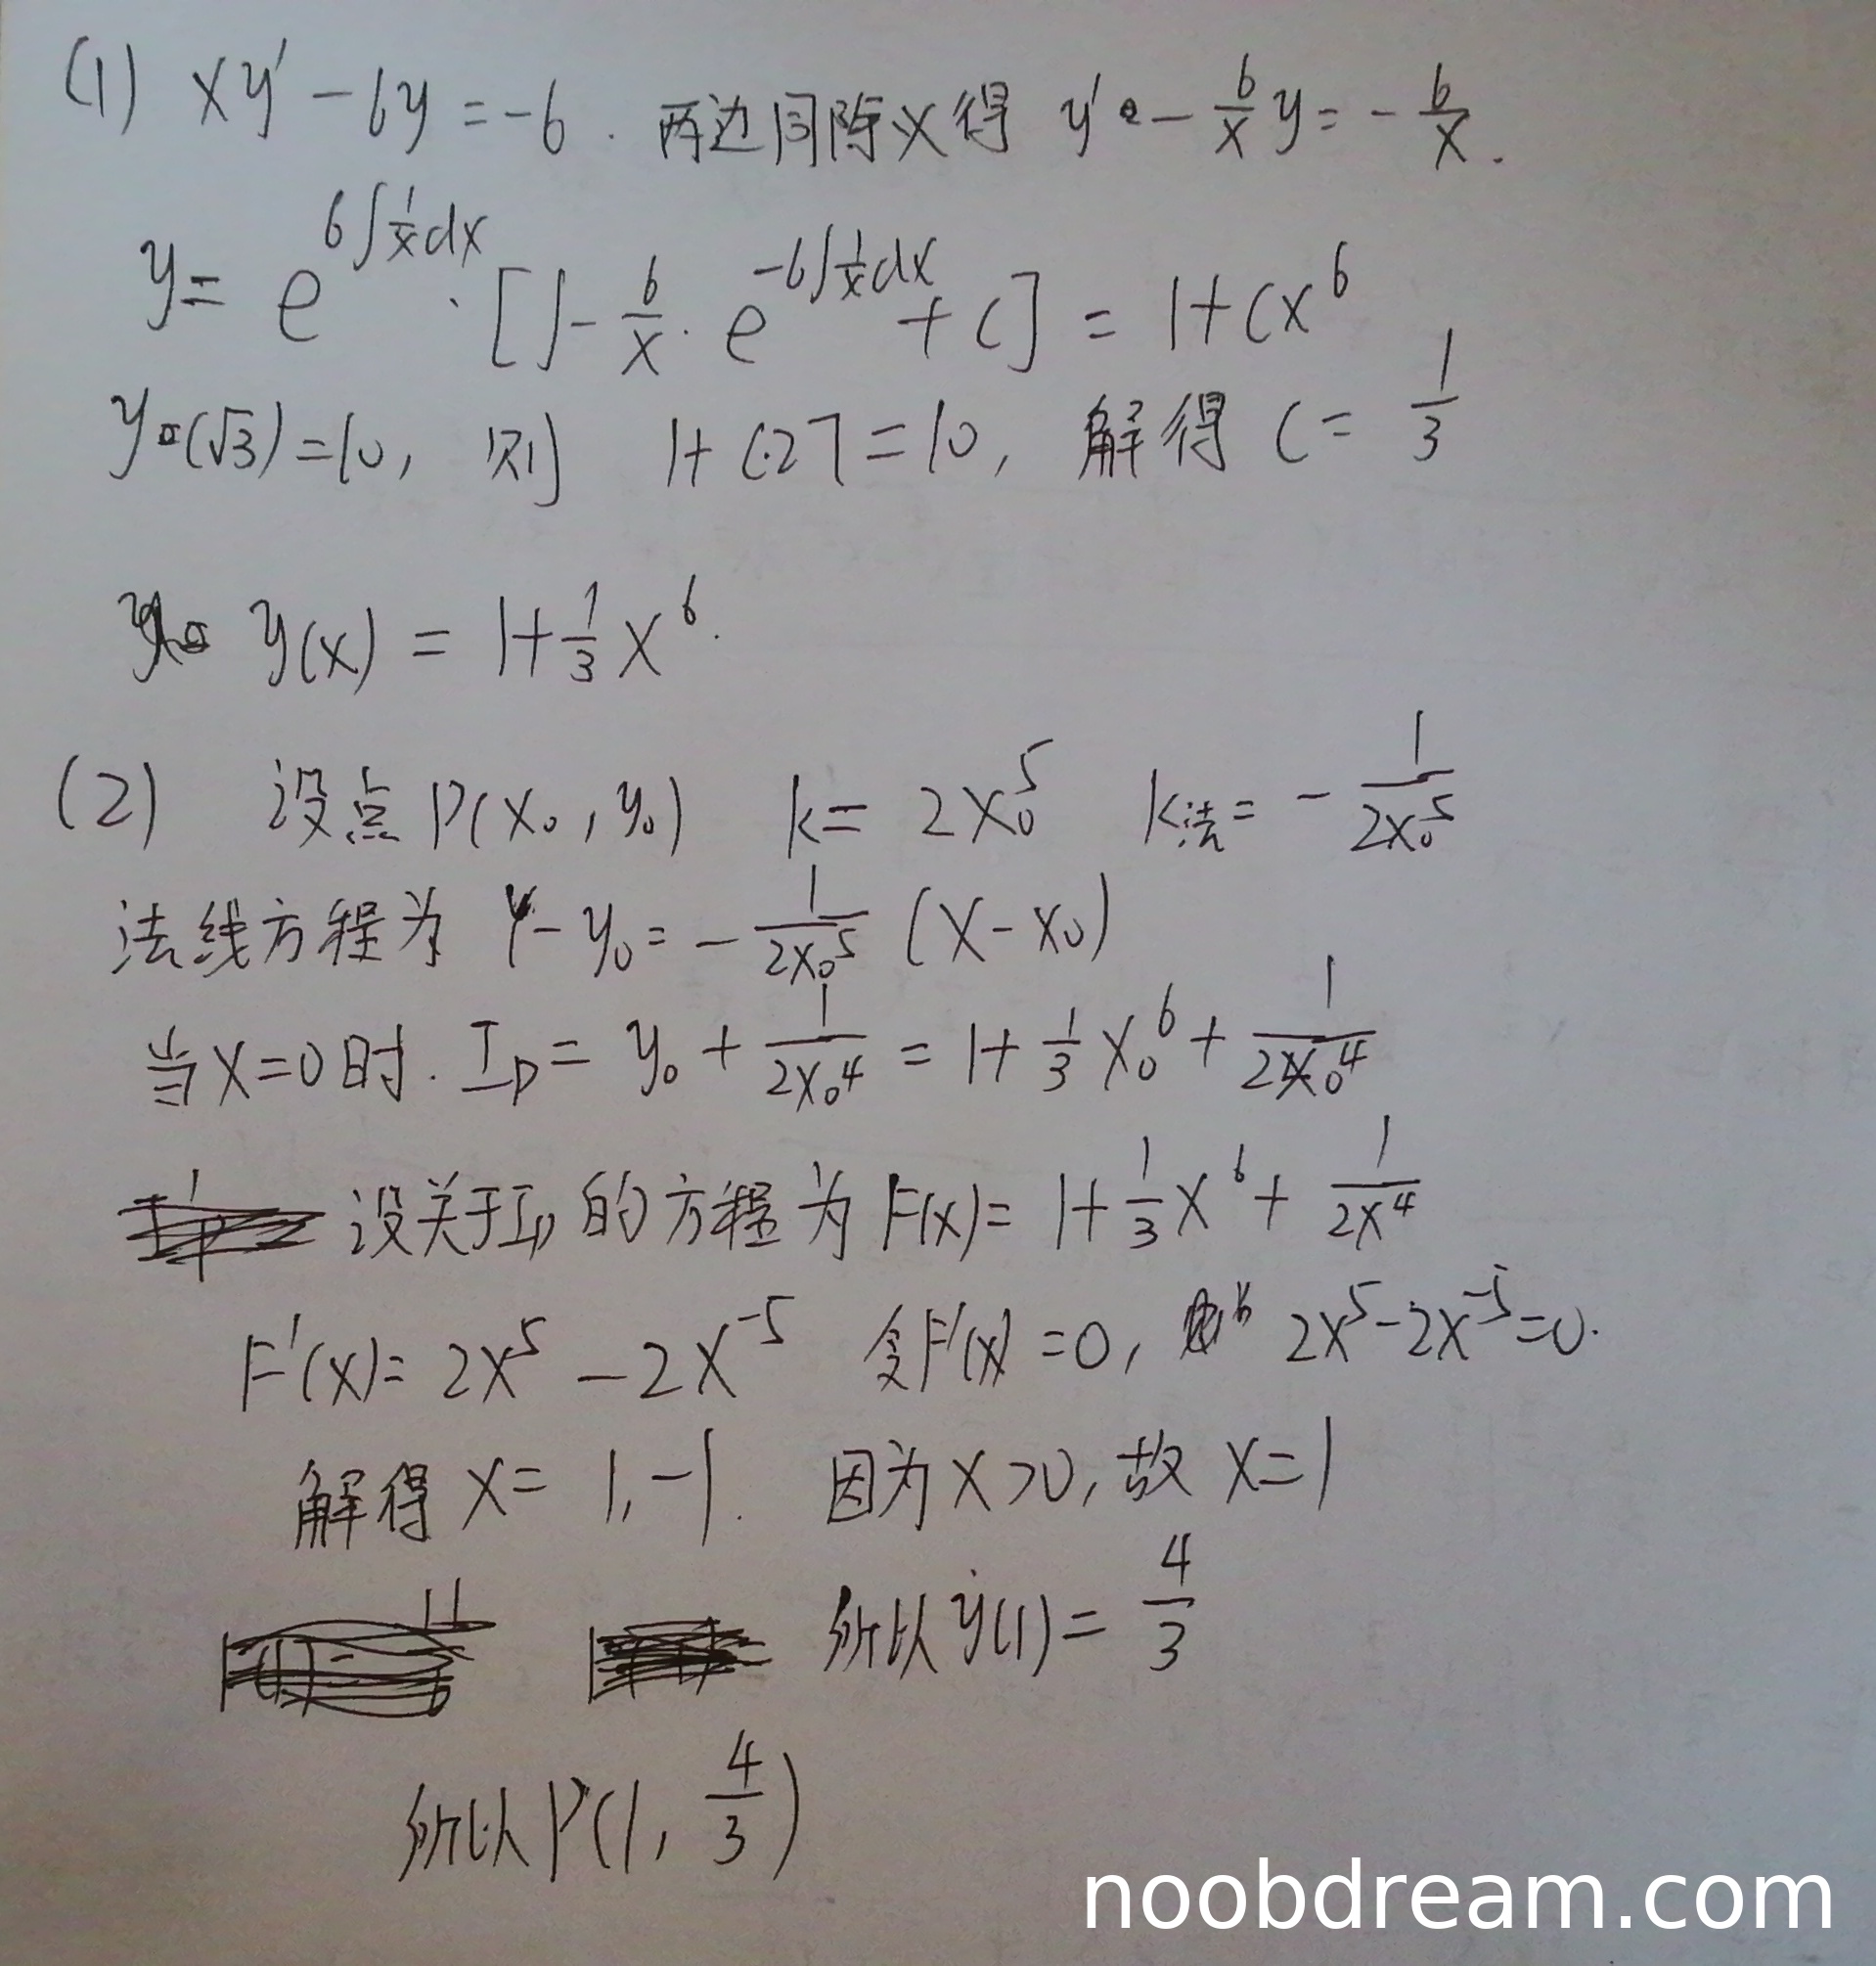 (1) xy' - 6y = -6 . 两边同除x得 y' - 6/x y = - 6/x .
y = e^{6∫1/x dx} · [∫ - 6/x · e^{-6∫1/x dx} + C] = 1 + Cx^6
y(√3) = 10, 则 1 + C·27 = 10, 解得 C = 1/3
y(x) = 1 + 1/3 x^6 .
(2) 设点P(x₀, y₀) k = 2x₀^5 k法 = - 1/(2x₀^5)
法线方程为 Y - y₀ = - 1/(2x₀^5) (X - x₀)
当X=0时. I_P = y₀ + 1/(2x₀^4) = 1 + 1/3 x₀^6 + 1/(2x₀^4)
设关于I_P的方程为F(x) = 1 + 1/3 x^6 + 1/(2x^4)
F'(x) = 2x^5 - 2x^{-5} 令F'(x) = 0, 2x^5 - 2x^{-5} = 0.
解得 x = 1, -1. 因为x>0, 故 x = 1
所以y(1) = 4/3
所以P(1, 4/3)
noobdream.com